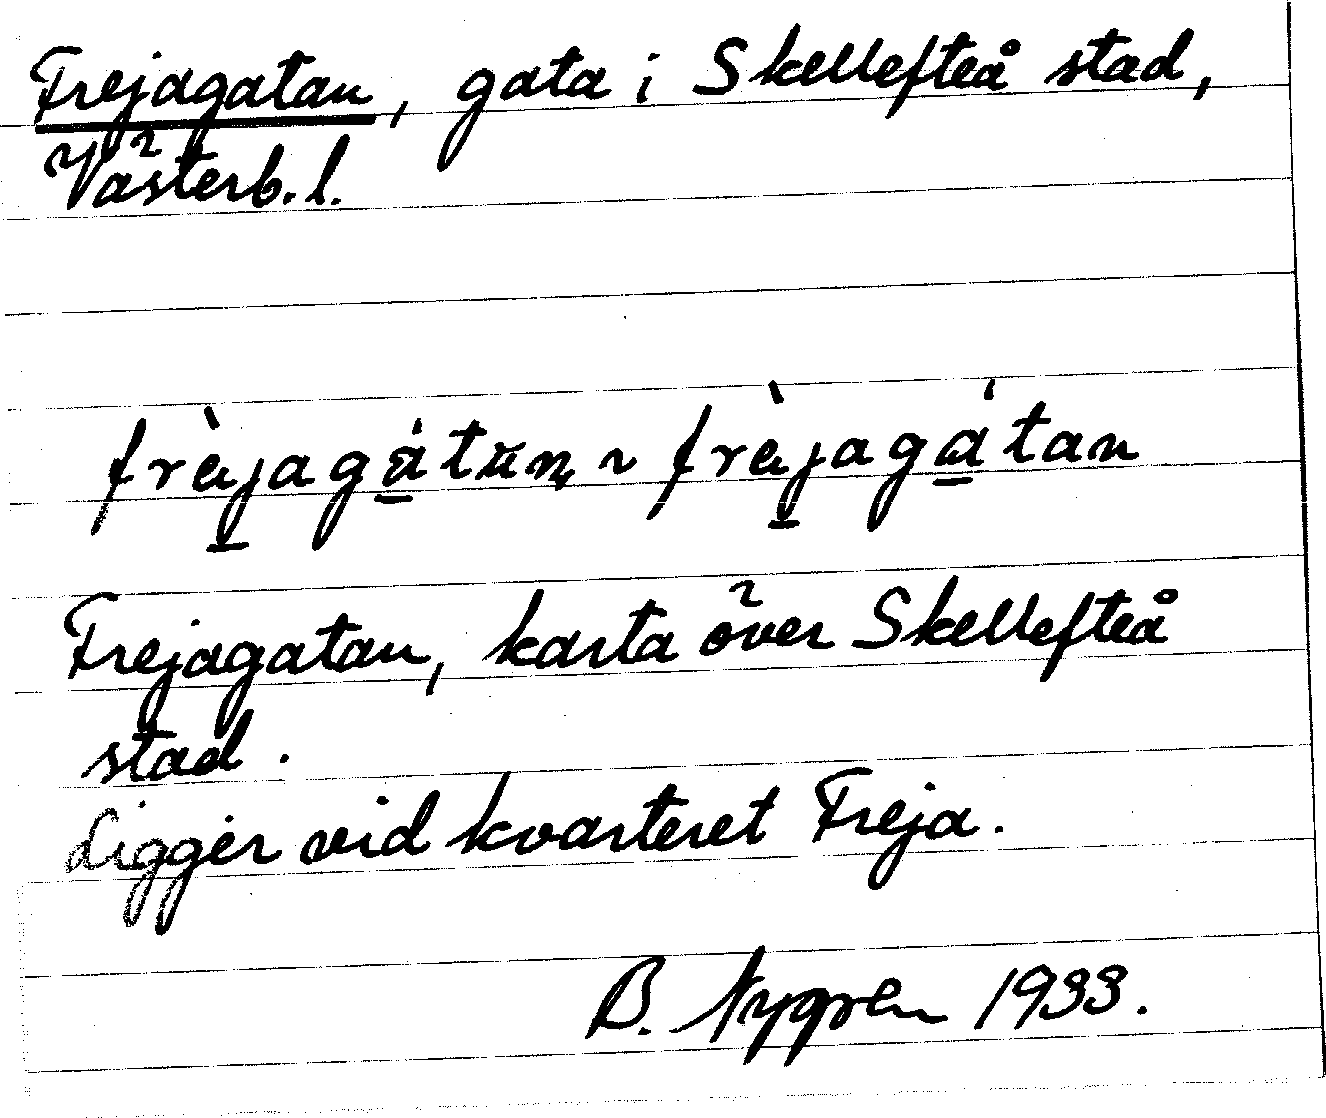 Frejagatan, gata i Skellefteå stad,
Västerb. l.
Frejagatan, karta över Skellefteå
stad.
Ligger vid kvarteret Freja.
B. Nygren 1933.